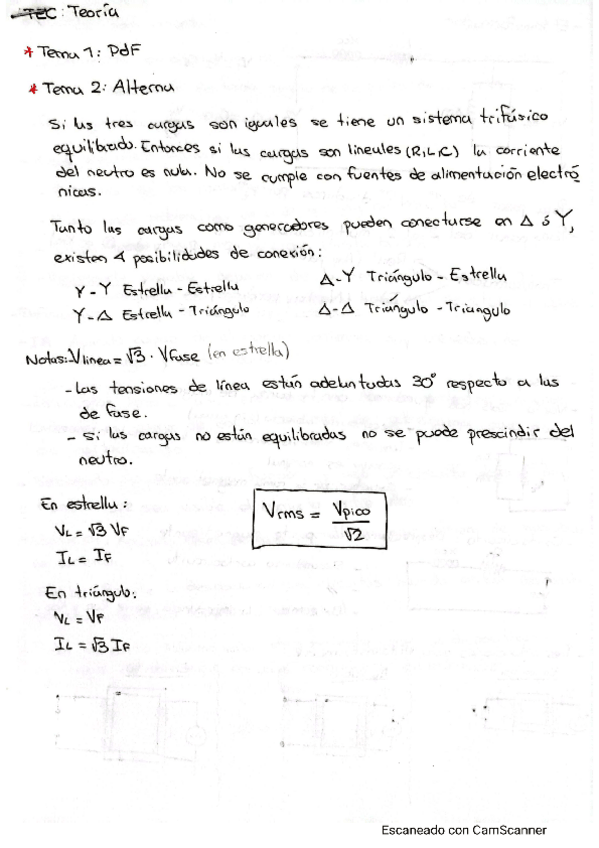 TEC: Teoría
* Tema 1: Pdf
* Tema 2: Alterna
Si las tres cargas son iguales se tiene un sistema trifásico
equilibrado. Entonces si las cargas son lineales (R,L,C) la corriente
del neutro es nula. No se cumple con fuentes de alimentación electró
nicas.
Tanto las cargas como generadores pueden conectarse en Δ ó Y,
existen 4 posibilidades de conexión:
Y-Y Estrella - Estrella Δ-Y Triángulo - Estrella
Y-Δ Estrella - Triángulo Δ-Δ Triángulo - Triangulo
Notas: Vlinea = √3 · Vfase (en estrella)
- Las tensiones de línea están adelantadas 30° respecto a las
de fase.
- Si las cargas no están equilibradas no se puede prescindir del
neutro.
En estrella:
VL = √3 VF
IL = IF
Vrms = Vpico/√2
En triángulo:
VL = VF
IL = √3 IF
Escaneado con CamScanner